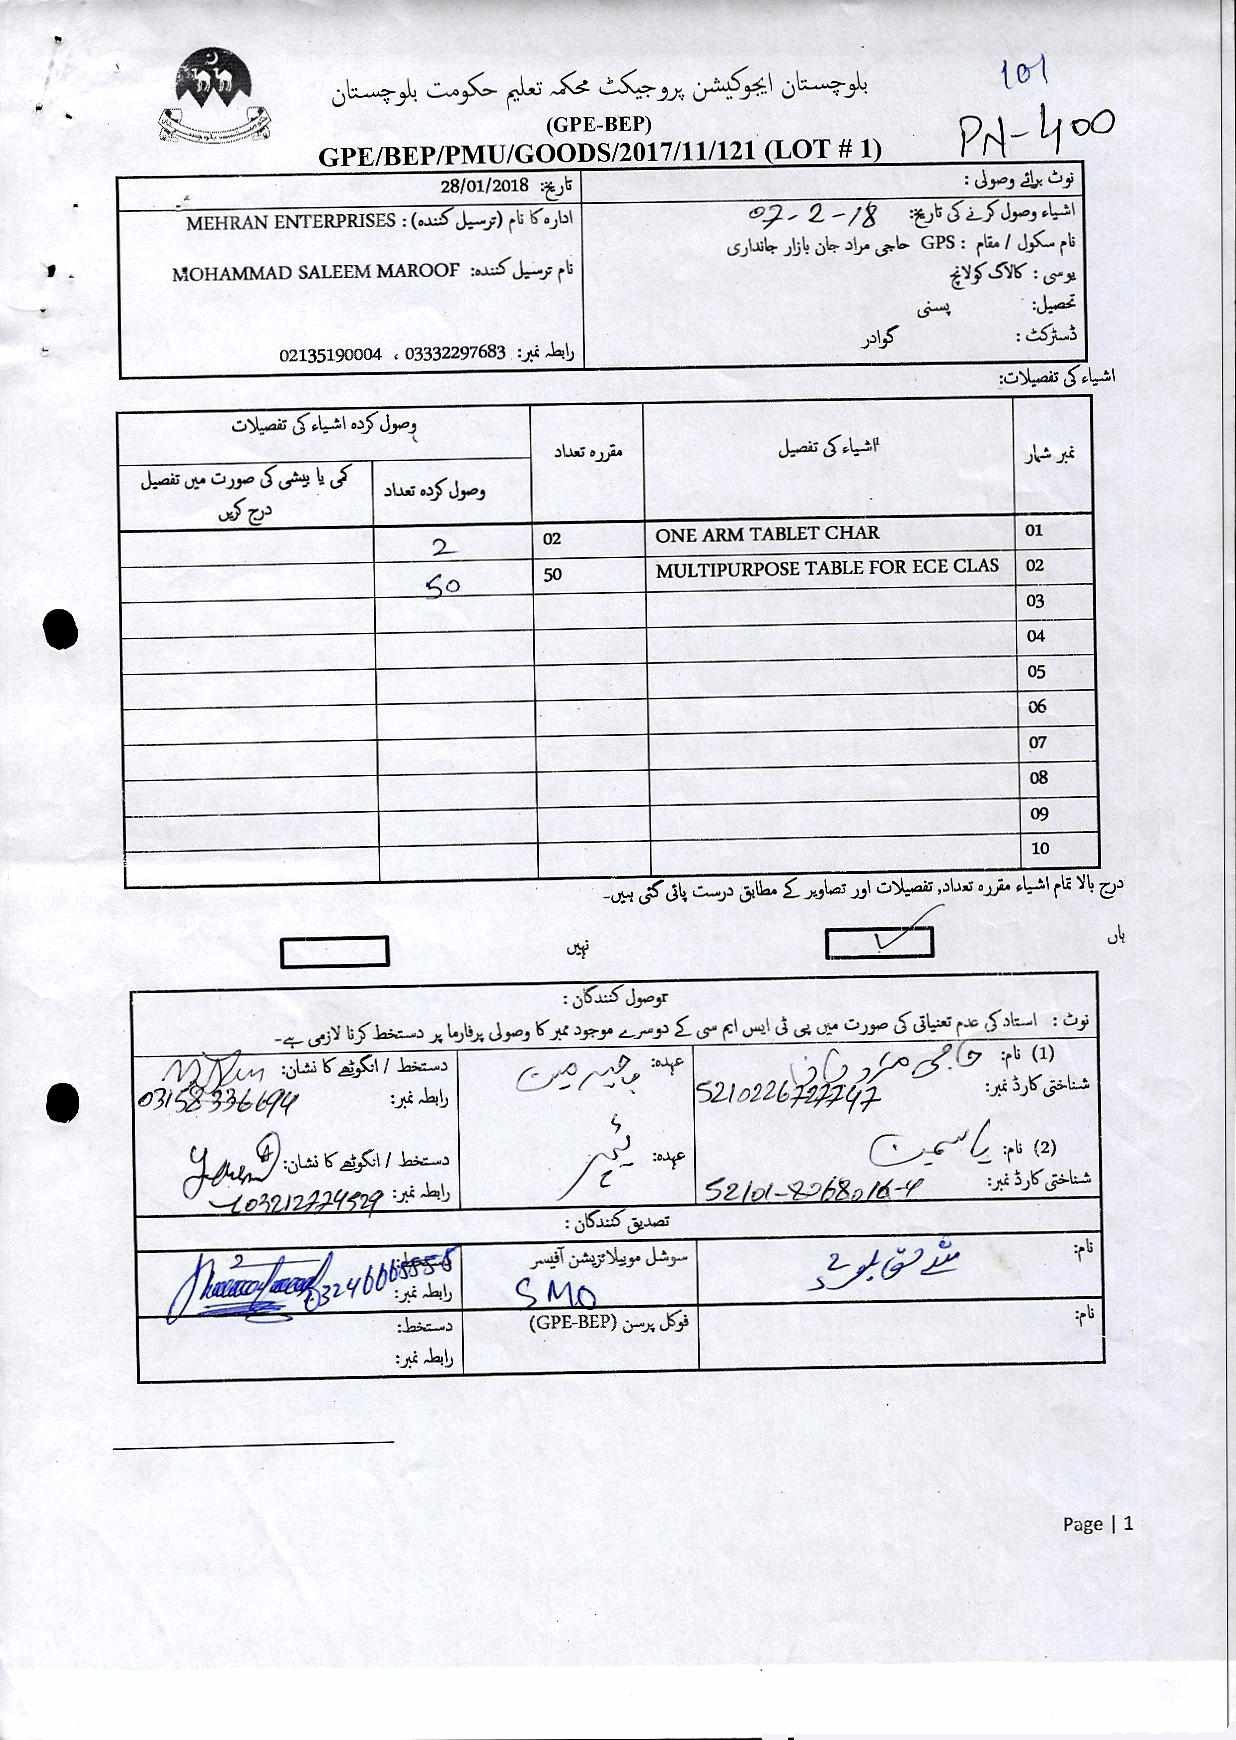 101
بلوچستان ایجوکیشن پروجیکٹ محکمہ تعلیم حکومت بلوچستان
(GPE-BEP)
PN-400
GPE/BEP/PMU/GOODS/2017/11/121 (LOT # 1)
نوٹ برائے وصولی :
تاریخ: 28/01/2018
اشیاء وصول کرنے کی تاریخ: 07-2-18
ادارہ کا نام (ترسیل کنندہ) : MEHRAN ENTERPRISES
نام سکول / مقام : GPS حاجی مراد جان بازار جانداری
نام ترسیل کنندہ: MOHAMMAD SALEEM MAROOF
یوسی : کالاگ کولانچ
تحصیل: پسنی
ڈسٹرکٹ : گوادر
رابطہ نمبر: 03332297683 ، 02135190004
اشیاء کی تفصیلات:
نمبر شمار اشیاء کی تفصیل مقررہ تعداد وصول کردہ اشیاء کی تفصیلات
وصول کردہ تعداد کمی یا بیشی کی صورت میں تفصیل درج کریں
01 ONE ARM TABLET CHAR 02 2
02 MULTIPURPOSE TABLE FOR ECE CLAS 50 50
03
04
05
06
07
08
09
10
درج بالا تمام اشیاء مقررہ تعداد, تفصیلات اور تصاویر کے مطابق درست پائی گئی ہیں۔
ہاں ✓ نہیں
وصول کنندگان :
نوٹ : استاد کی عدم تعنیاتی کی صورت میں پی ٹی ایس ایم سی کے دوسرے موجود ممبر کا وصولی پرفارما پر دستخط کرنا لازمی ہے۔
(1) نام: حاجی عہدہ: دستخط / انگوٹھے کا نشان:
شناختی کارڈ نمبر: 5210226727747 رابطہ نمبر: 03158336694
(2) نام: یاسمین عہدہ: ٹیچر دستخط / انگوٹھے کا نشان:
شناختی کارڈ نمبر: رابطہ نمبر: 03212774529
تصدیق کنندگان :
نام: سوشل موبیلائزیشن آفیسر
SMO رابطہ نمبر:
نام: فوکل پرسن (GPE-BEP) دستخط:
رابطہ نمبر:
Page | 1